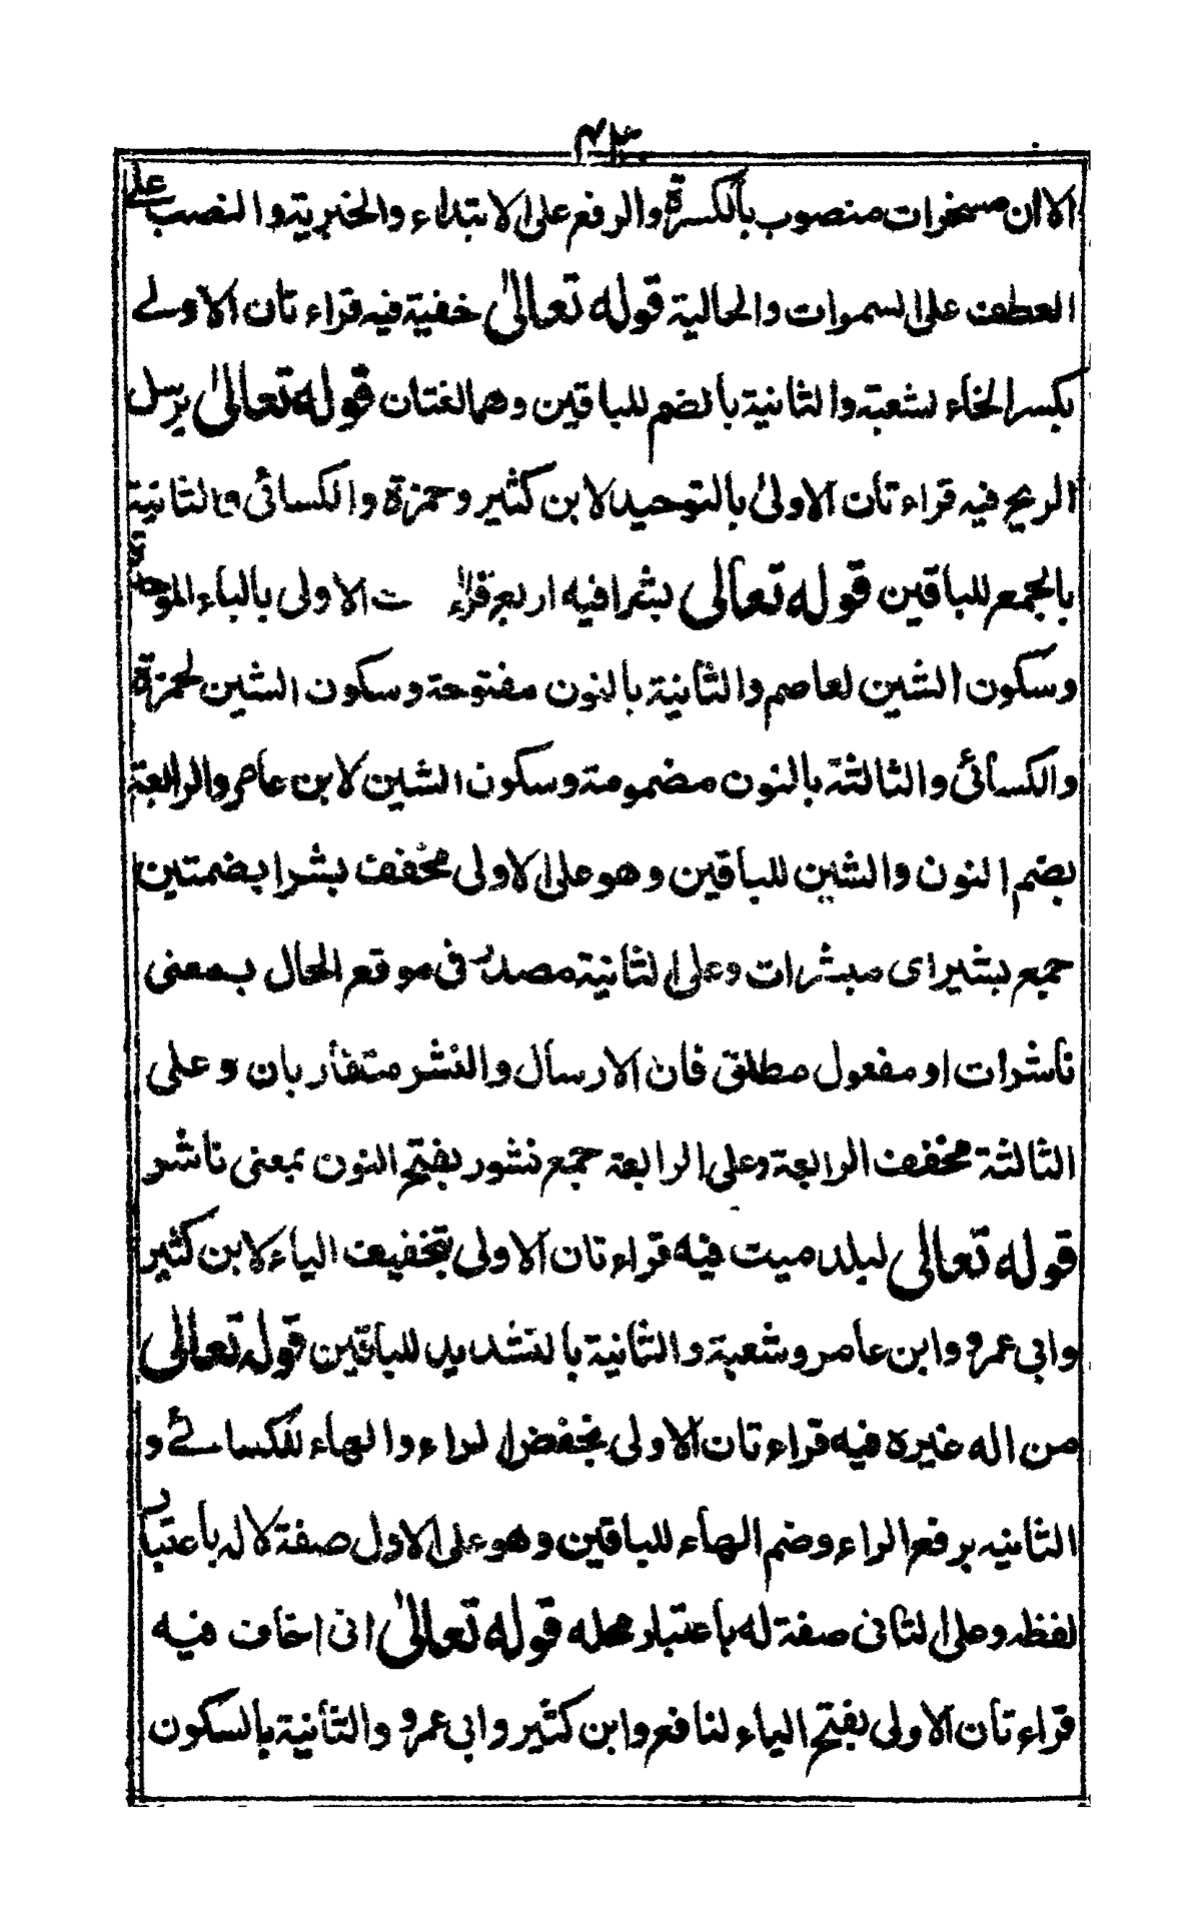 الا ان مسخرات منصوب بالكسرة والرفع على الابتداء والخبرية والنصب على
العطف على السموات والحالية قوله تعالىٰ خفية فيه قراء تان الاولے
بكسر الخاء لشعبة والثانية بالضم للباقين وهما لغتان قوله تعالىٰ يرسل
الريح فيه قراء تان الاولىٰ بالتوحيد لابن كثير وحمزة والكسائى والثانية
بالجمع للباقين قوله تعالى بشرا فيه اربع قراء ت الاولى بالباء الموحدة
وسكون الشين لعاصم والثانية بالنون مفتوحة وسكون الشين لحمزة
والكسائى والثالثة بالنون مضمومة وسكون الشين لابن عامر والرابعة
بضم النون والشين للباقين وهو على الاولى مخفف بشرا بضمتين
جمع بشير اى مبشرات وعلى الثانية مصدر فى موقع الحال بمعنى
ناشرات او مفعول مطلق فان الارسال والنشر متقاربان وعلى
الثالثة مخفف الرابعة وعلى الرابعة جمع نشور بفتح النون بمعنى ناشر
قوله تعالى لبلد ميت فيه قراء تان الاولى بتخفيف الياء لابن كثير
وابى عمرو وابن عامر وشعبة والثانية بالتشديد للباقين قوله تعالى
من اله غيره فيه قراء تان الاولى بخفض الراء والهاء للكسائے و
الثانيه برفع الراء وضم الهاء للباقين وهو على الاول صفة لاله باعتبار
لفظه وعلى الثانى صفة له باعتبار محله قوله تعالىٰ انى اخاف فيه
قراء تان الاولى بفتح الياء لنافع وابن كثير وابى عمرو والثانية بالسكون